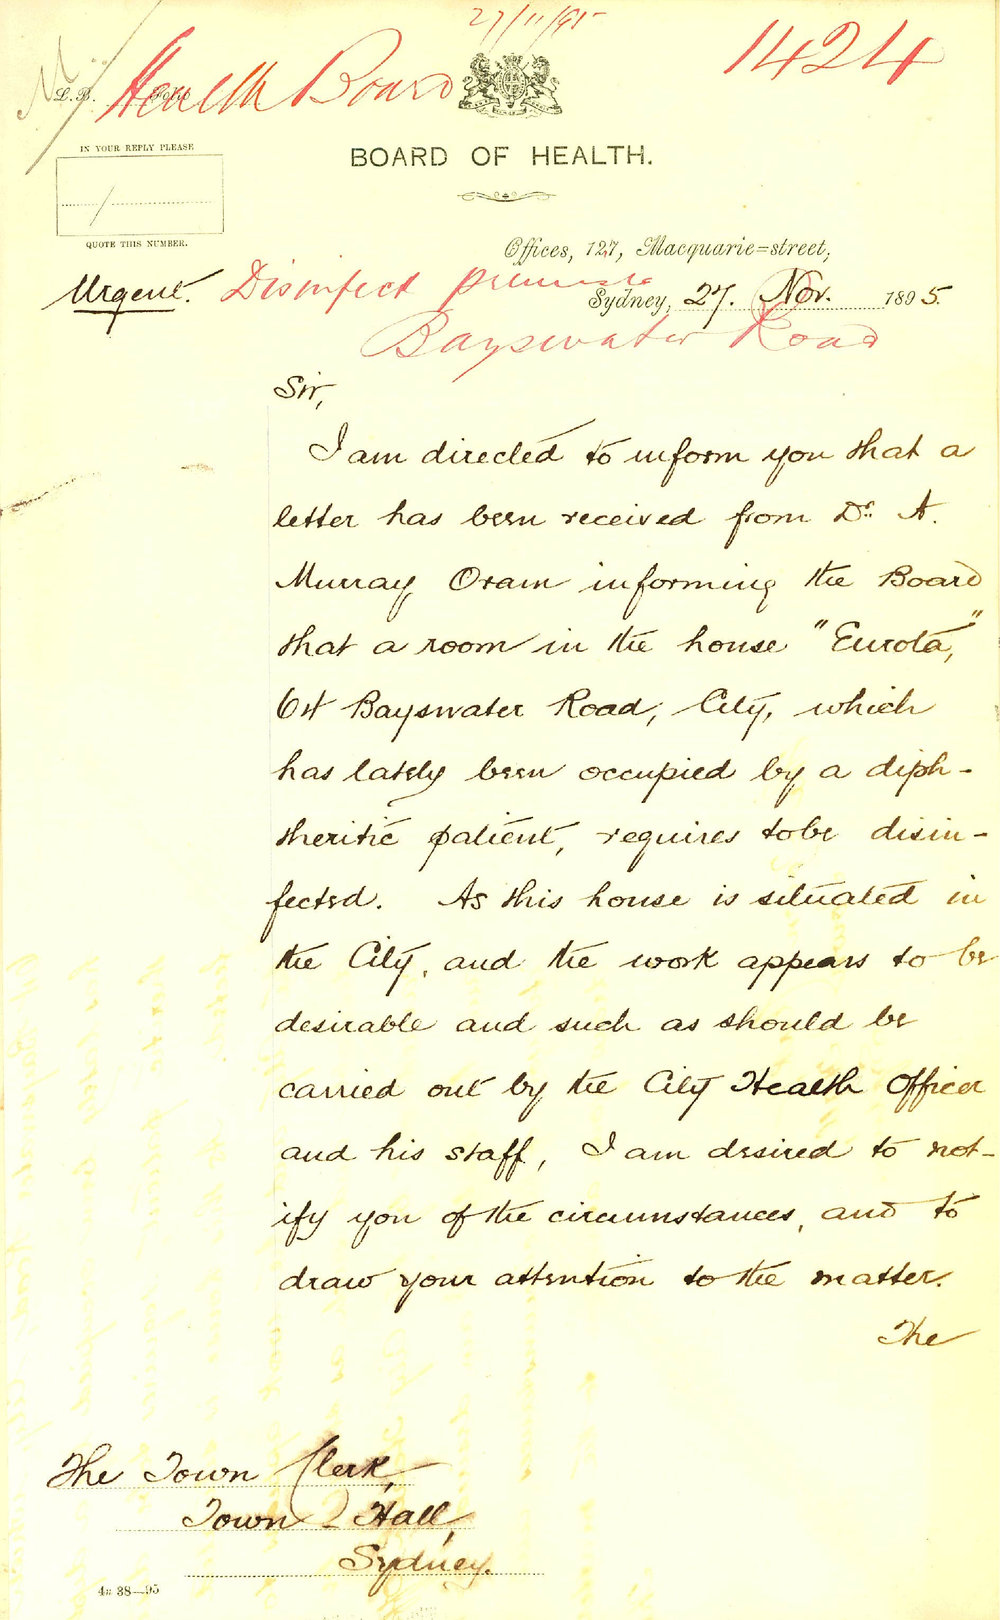 27/11/95
1424
Health Board
L. B.
BOARD OF HEALTH.
IN YOUR REPLY PLEASE
QUOTE THIS NUMBER.
Offices, 127, Macquarie=street,
Urgent. Disinfect premises
Sydney, 27. Nov. 1895.
Bayswater Road
Sir,
I am directed to inform you that a
letter has been received from Dr. A.
Murray Oram informing the Board
that a room in the house "Eurota,"
64 Bayswater Road, City, which
has lately been occupied by a diph-
theritic patient, requires to be disin-
fected. As this house is situated in
the City, and the work appears to be
desirable and such as should be
carried out by the City Health Officer
and his staff, I am desired to not-
ify you of the circumstances, and to
draw your attention to the matter.
The
The Town Clerk,
Town Hall,
Sydney.
4n 38—95